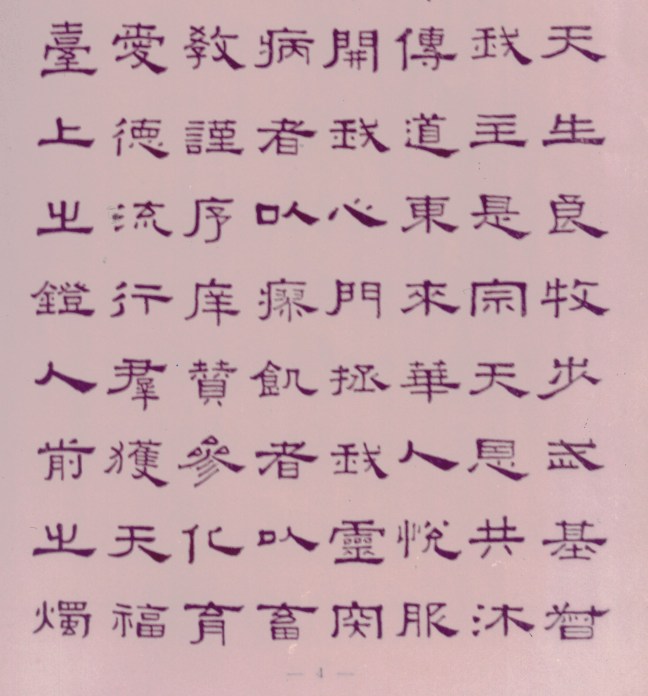 天生良牧步武基督
我主是宗天恩共沐
傳道東來華人悅服
開我心門拯我靈肉
病者以瘳飢者以畜
敎謹序庠贊參化育
愛德流行羣獲天福
臺上之鐙人前之燭
— 4 —